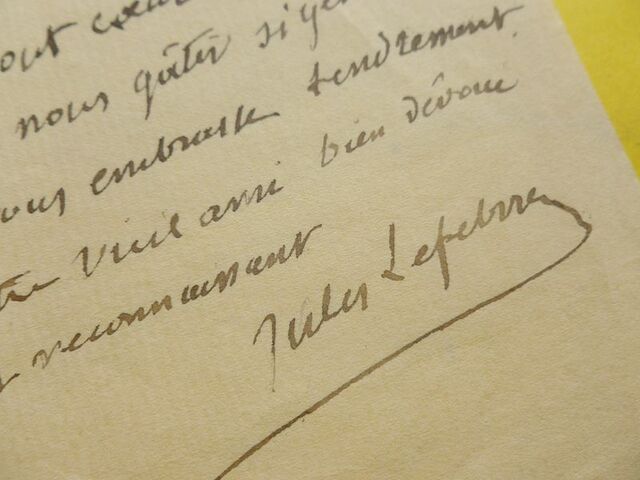 out cœur
nous gâter si gen
ous embrasse tendrement.
tre vieil ami bien dévoué
t reconnaissant
Jules Lefebvre